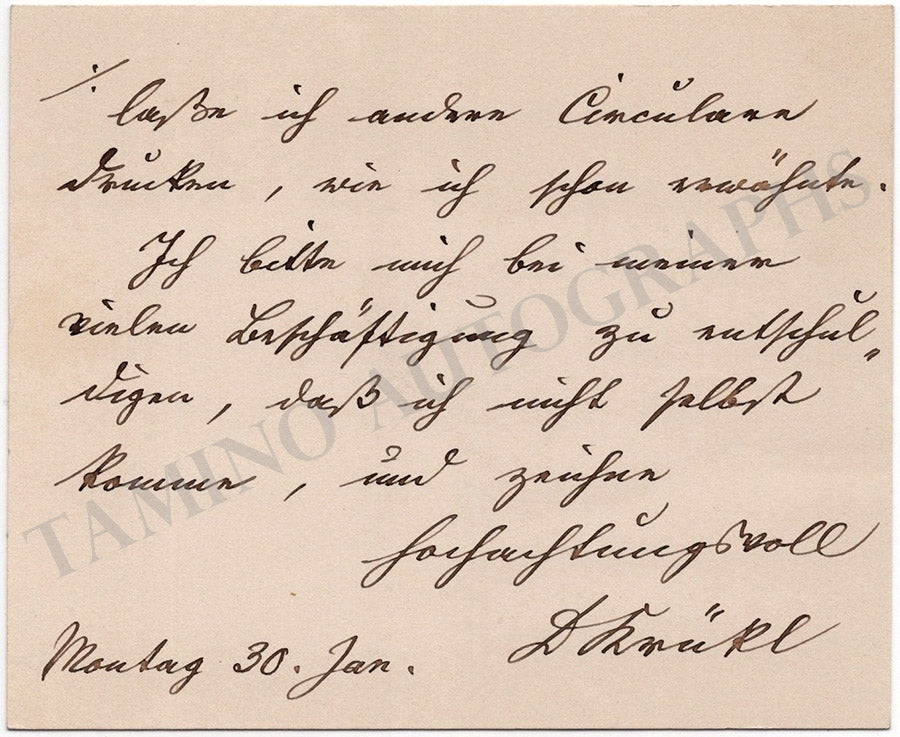 ./. laße ich andere Circulare
drucken, wie ich schon erwähnte.
Ich bitte mich bei meiner
vielen Beschäftigung zu entschul„
digen, daß ich nicht selbst
komme, und zeichne
hochachtungsvoll
D Krükl
Montag 30. Jan.
TAMINO AUTOGRAPHS